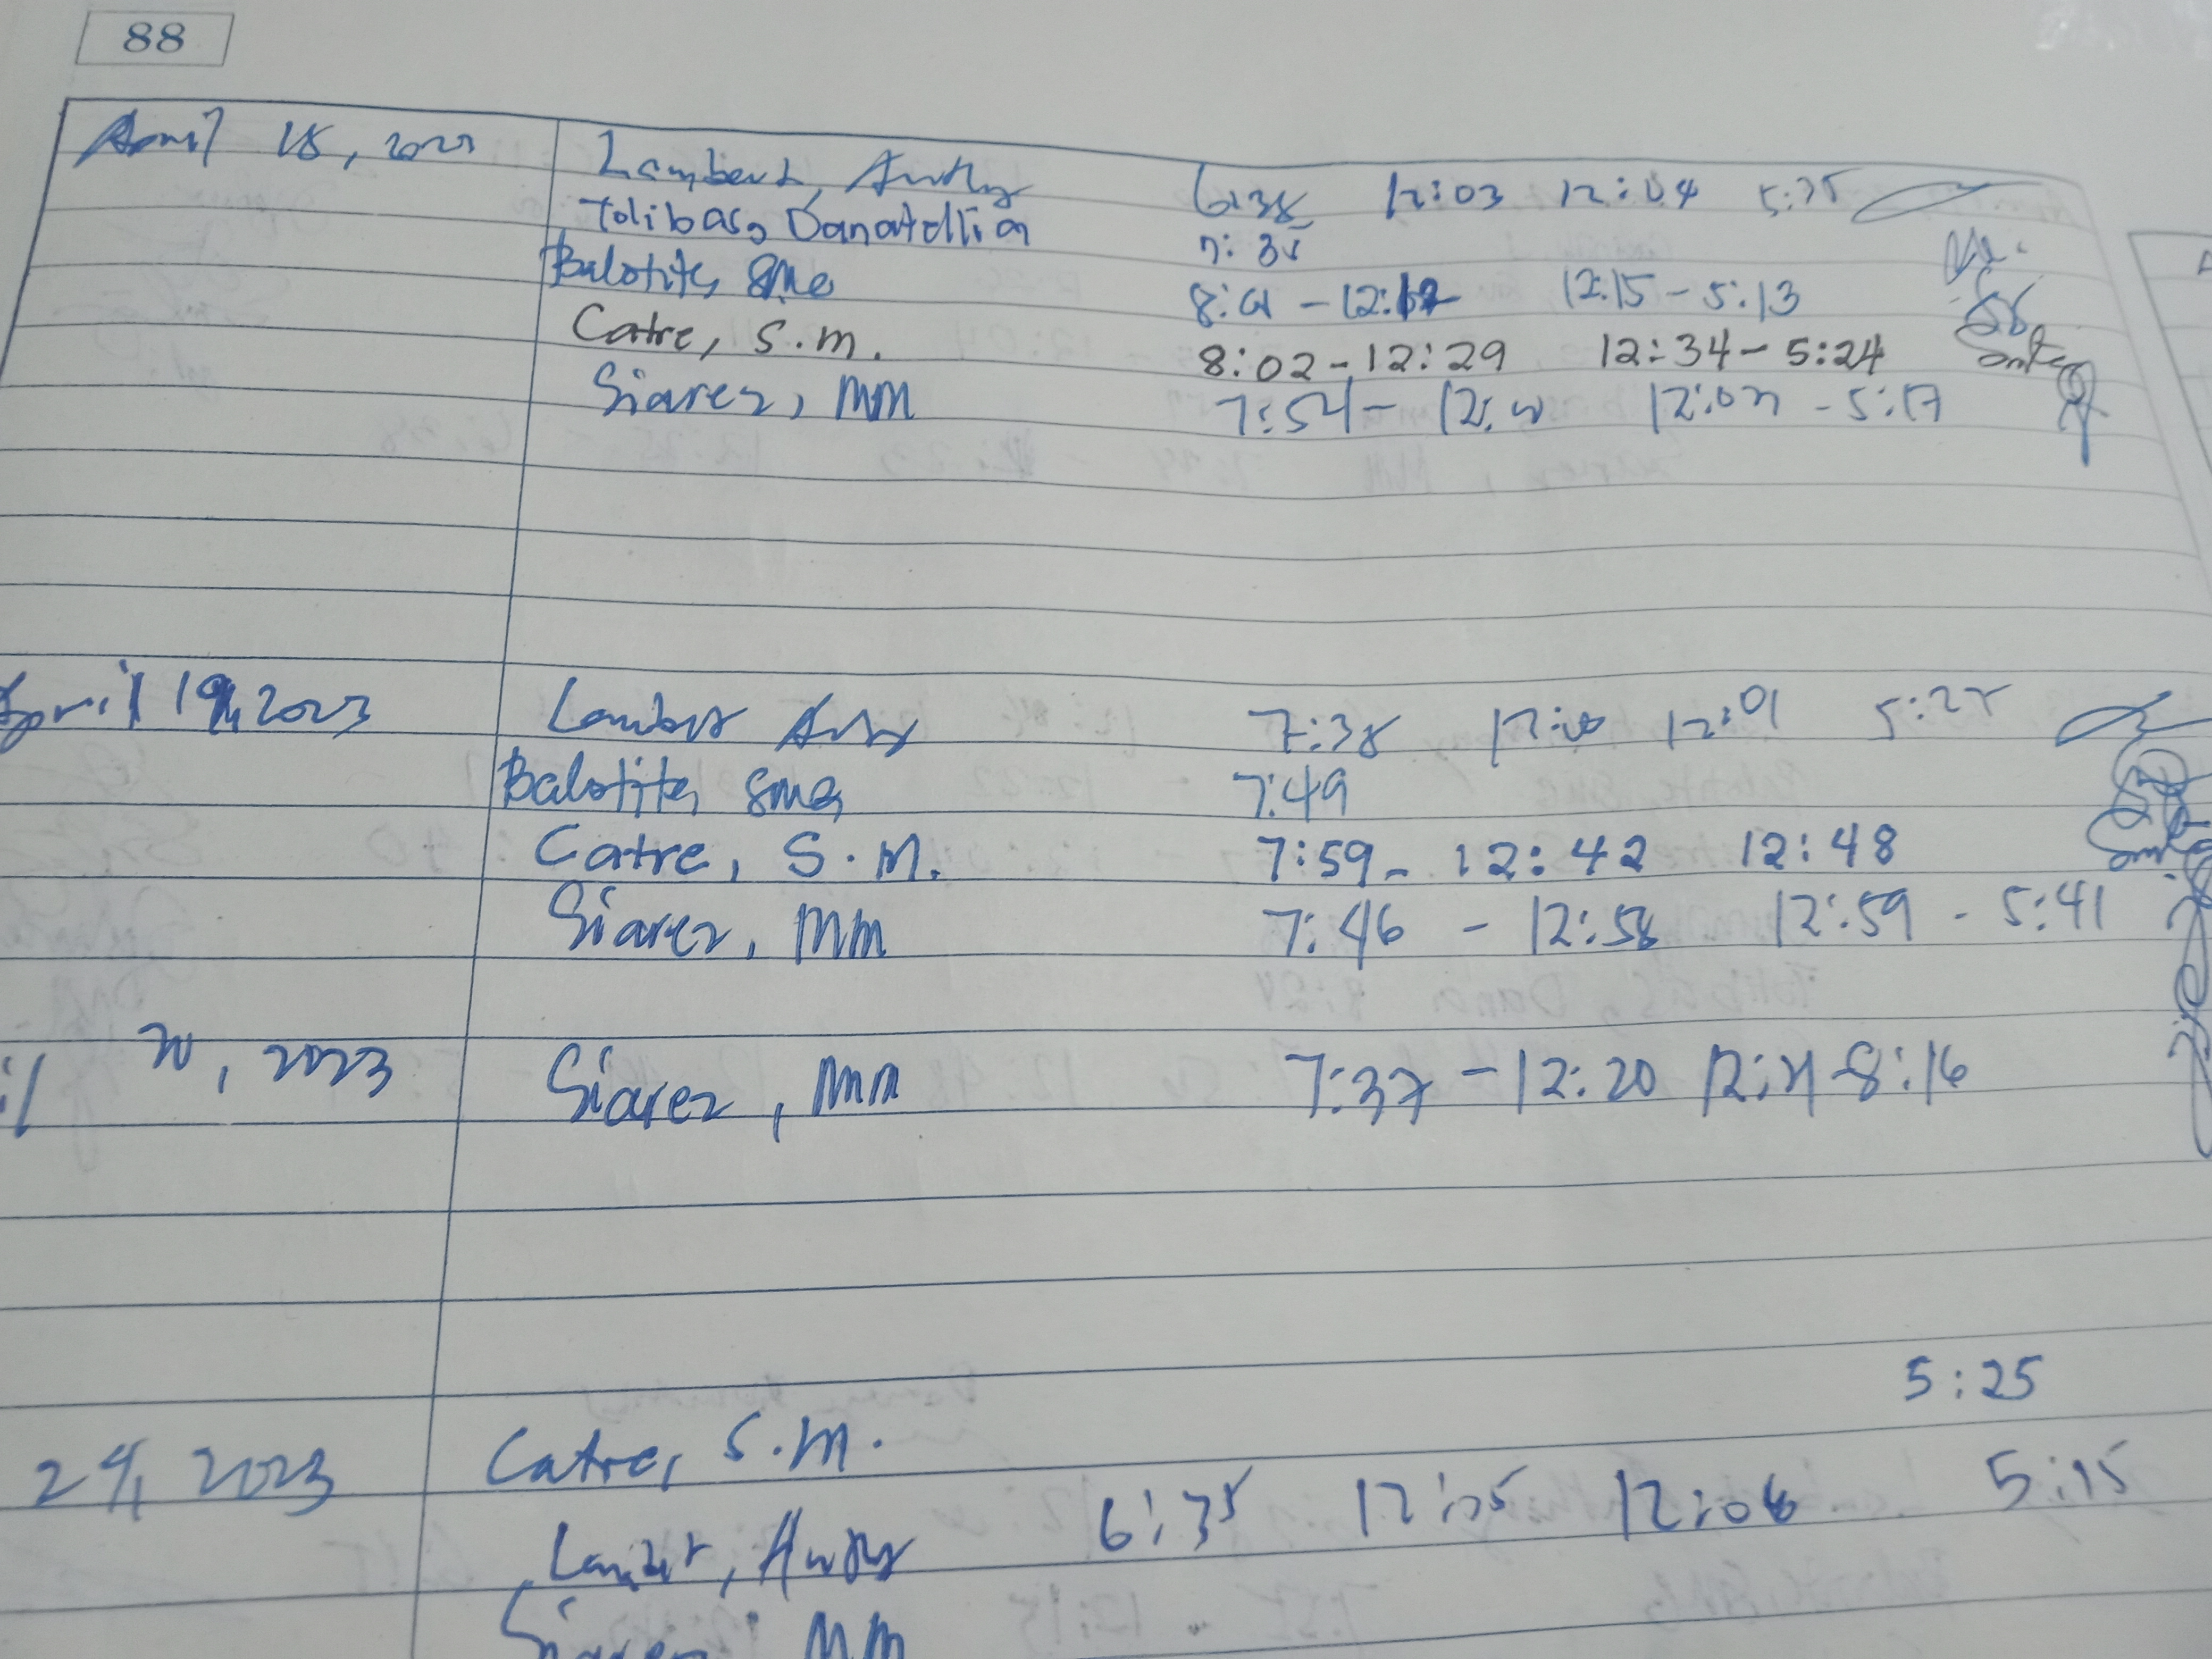 88
April 18, 2023 Lambert, 6:38 12:03 12:04 5:35
Tolibas, Danatellia 7:35
Balotite, SMe 8:01 - 12:12 12:15 - 5:13
Catre, S.M. 8:02 - 12:29 12:34 - 5:24
Siarez, MM 7:54 - 12:03 - 5:17
April 19, 2023 Lambert 7:38 12:00 12:01
Balotite, SMe 7:49
Catre, S.M. 7:59 - 12:42 12:48
Siarez, MM 7:46 - 12:58 12:59 - 5:41
il 20, 2023 Siarez, MM 7:37 - 12:20 12:21 - 8:16
5:25
24, 2023 Catre, S.M.
Lambert, 6:35 12:05 12:06 5:15
Siarez, MM